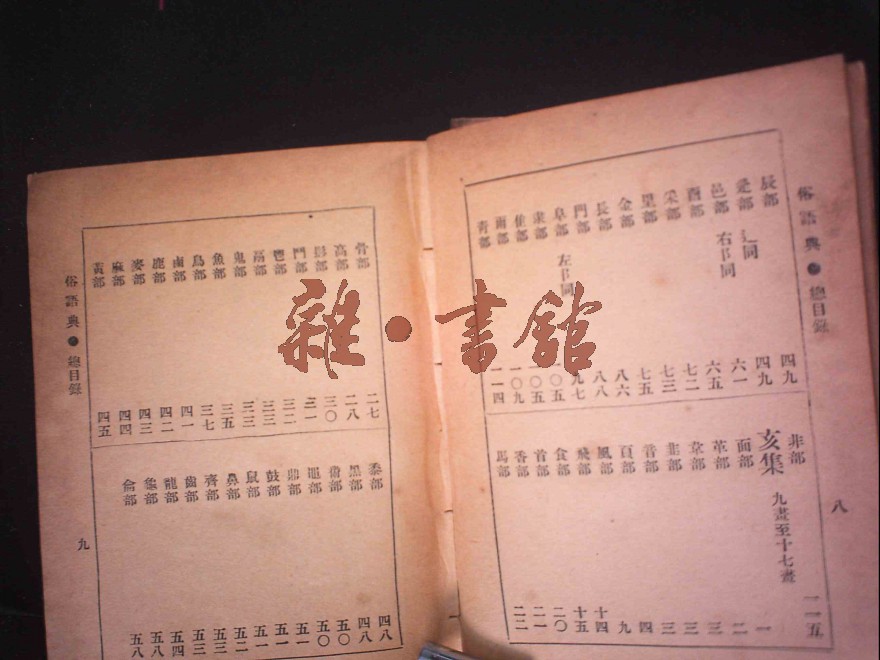 俗語典●總目錄
辰部 四九
辵部 辶同 四九
邑部 右阝同 六一
酉部 六五
釆部 七二
里部 七三
金部 七五
長部 八六
門部 八八
阜部 左阝同 九七
隶部 一〇五
隹部 一〇五
雨部 一〇九
青部 一一四
非部 一一五
亥集 九畫至十七畫
面部 一
革部 二
韋部 三
韭部 三
音部 三
頁部 四
風部 九
飛部 十四
食部 十五
首部 二〇
香部 二一
馬部 二二
八
骨部 二七
高部 二八
髟部 三〇
鬥部 三一
鬯部 三二
鬲部 三三
鬼部 三三
魚部 三五
鳥部 三七
鹵部 四一
鹿部 四二
麥部 四三
麻部 四四
黃部 四五
黍部 四八
黑部 四八
黹部 五〇
黽部 五〇
鼎部 五一
鼓部 五一
鼠部 五一
鼻部 五二
齊部 五三
齒部 五三
龍部 五四
龜部 五八
龠部 五八
俗語典●總目錄
九
雜·書館